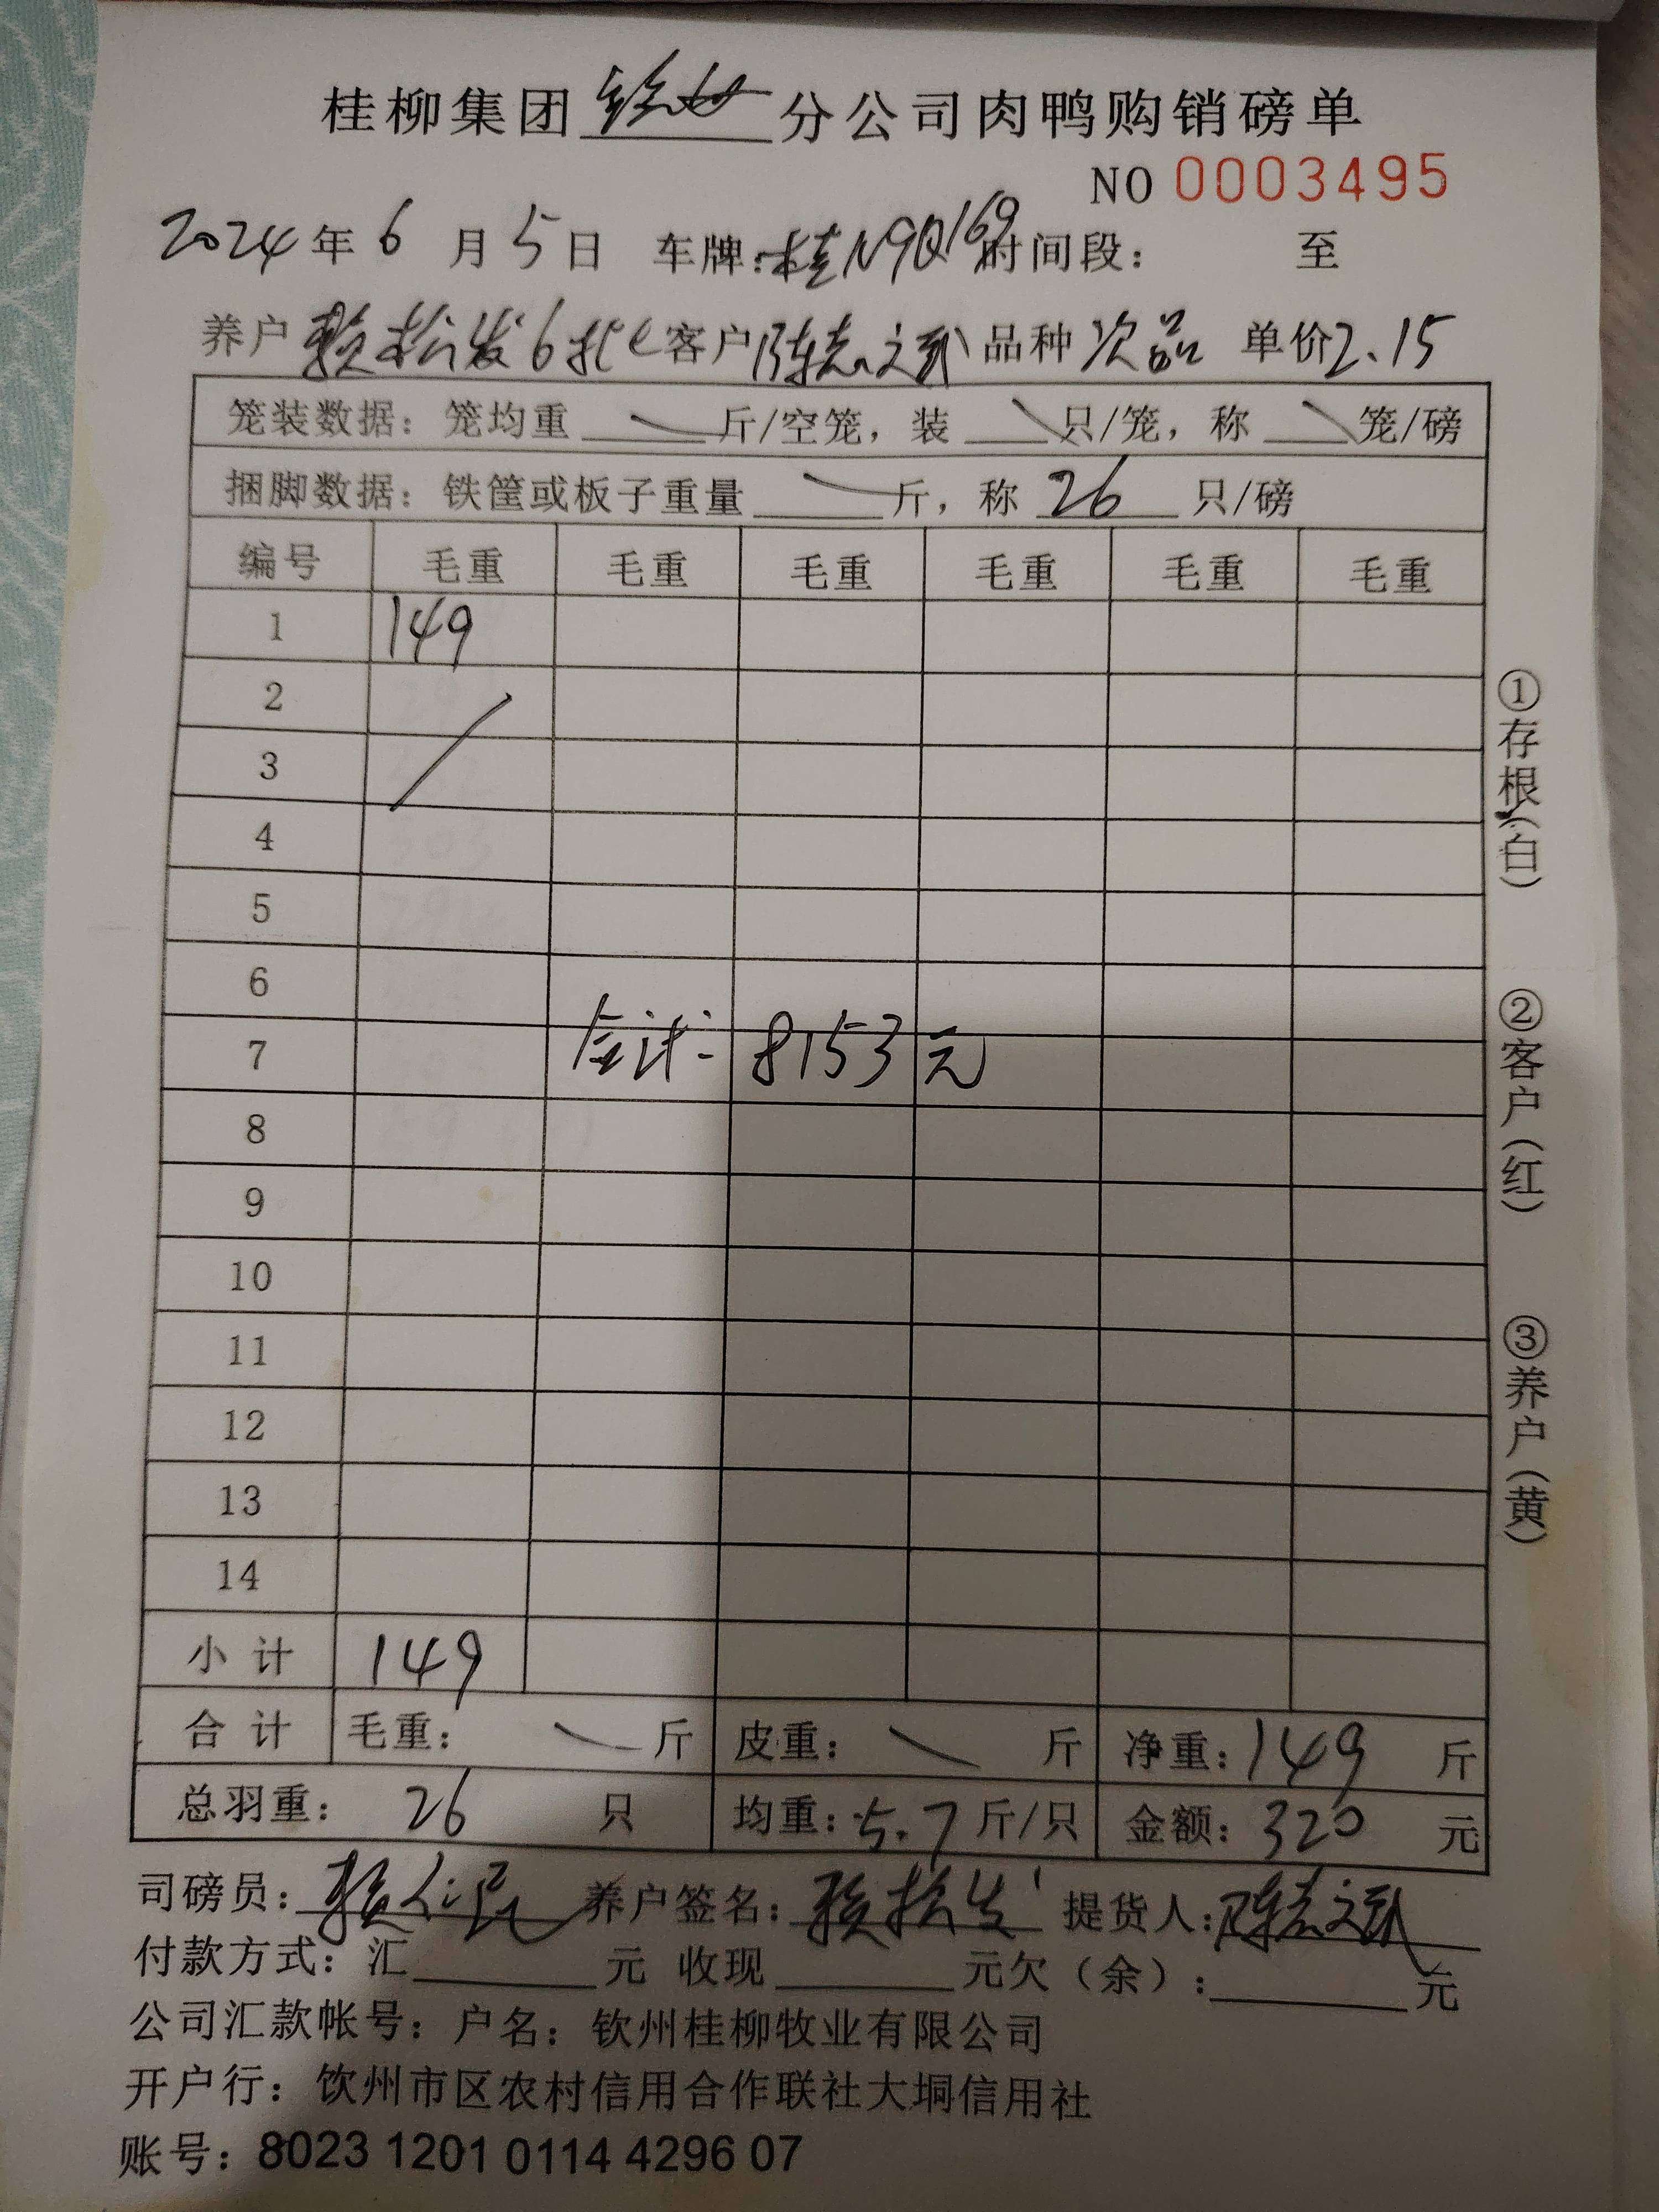 桂柳集团钦州分公司肉鸭购销磅单
NO 0003495
2024年6月5日 车牌:桂N9Q169时间段: 至
养户 赖松发6批 客户 陈志斌 品种 次品 单价2.15
笼装数据:笼均重 斤/空笼,装 只/笼,称 笼/磅
捆脚数据:铁筐或板子重量 斤,称 26 只/磅
编号 毛重 毛重 毛重 毛重 毛重 毛重
1 149
2
3
4
5
6
7 合计: 8153元
8
9
10
11
12
13
14
小计 149
合计 毛重: 斤 皮重: 斤 净重:149 斤
总羽重: 26 只 均重:5.7斤/只 金额:320 元
①存根(白)
②客户(红)
③养户(黄)
司磅员:赖仁民 养户签名:赖松发 提货人:陈志斌
付款方式:汇 元 收现 元欠(余): 元
公司汇款帐号:户名:钦州桂柳牧业有限公司
开户行:钦州市区农村信用合作联社大垌信用社
账号:8023 1201 0114 4296 07